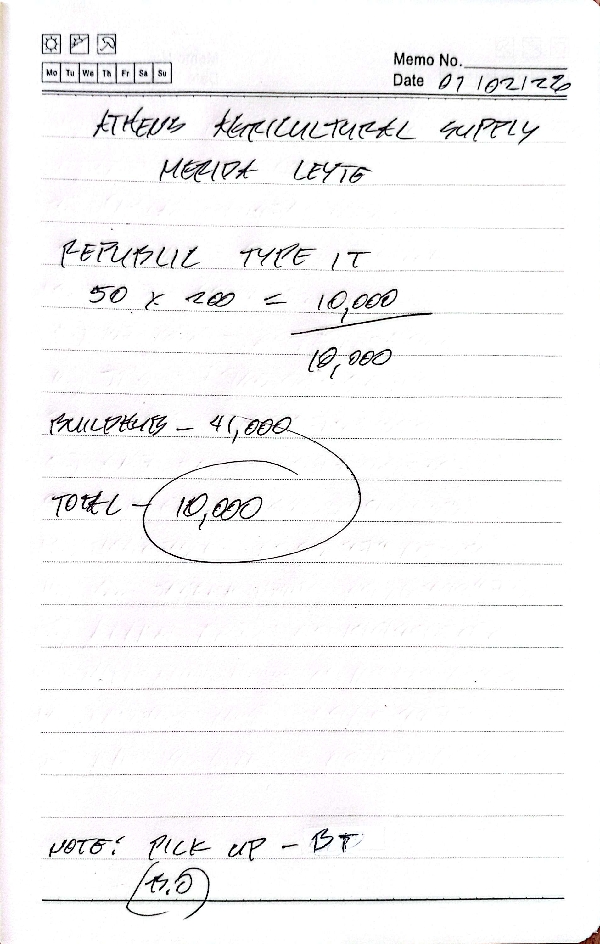 Memo No.
Mo Tu We Th Fr Sa Su
Date 07/02/26
ATHENS AGRICULTURAL SUPPLY
MERIDA LEYTE
REPUBLIC TYPE 1T
50 x 200 = 10,000
10,000
BUILDHUB - 41,000
TOTAL - 10,000
NOTE: PICK UP - BT